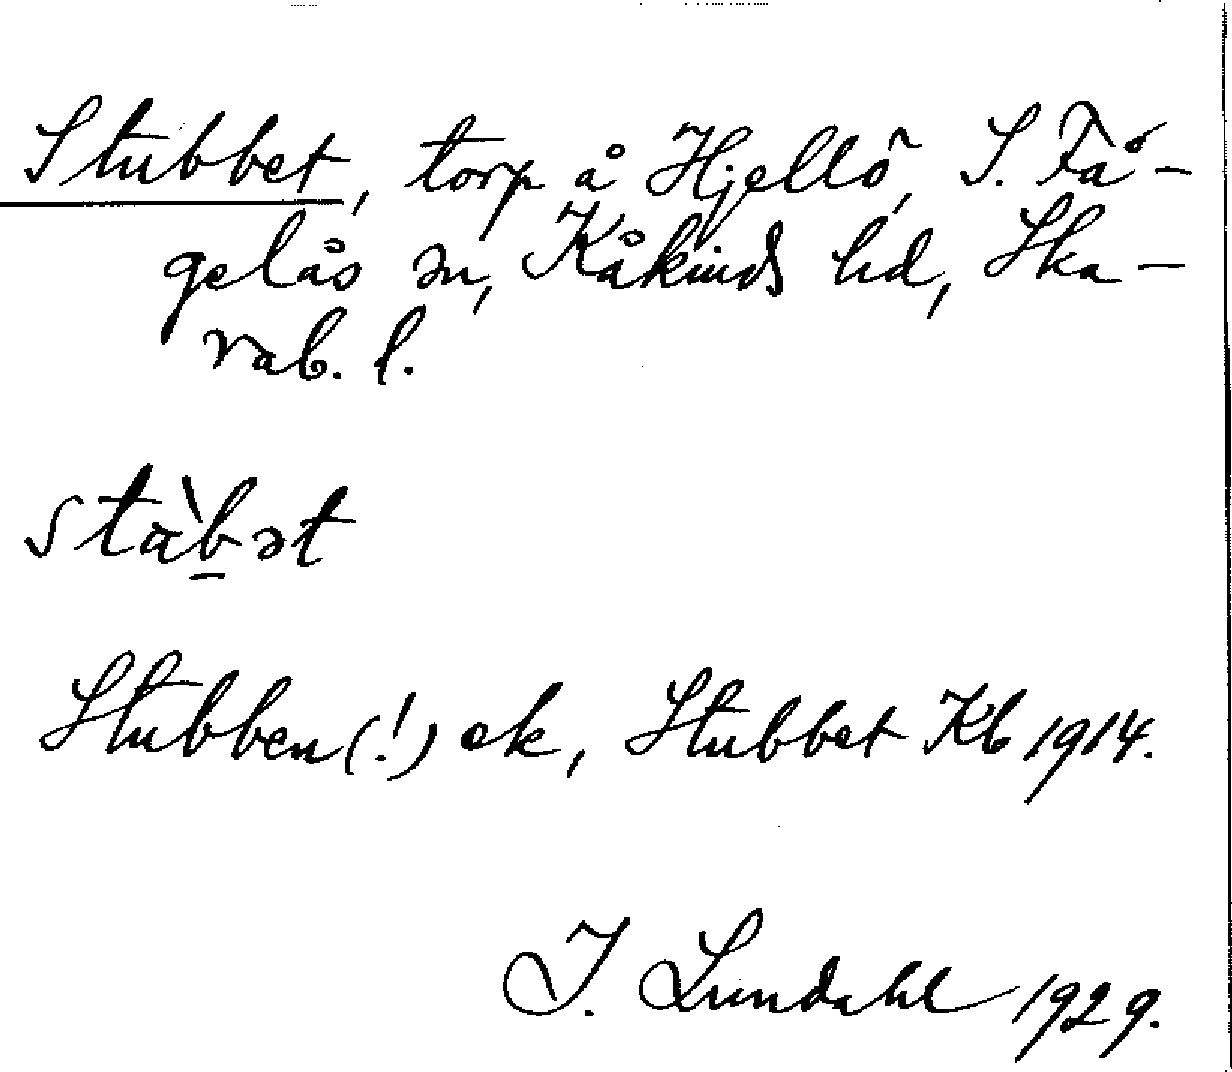 Stubbet, torp å Hjellö, S. Få-
gelås sn, Kåkinds hd, Ska-
rab. l.
stàb̲ət
Stubben(!) ek, Stubbet Kb 1914.
I. Lundahl 1929.